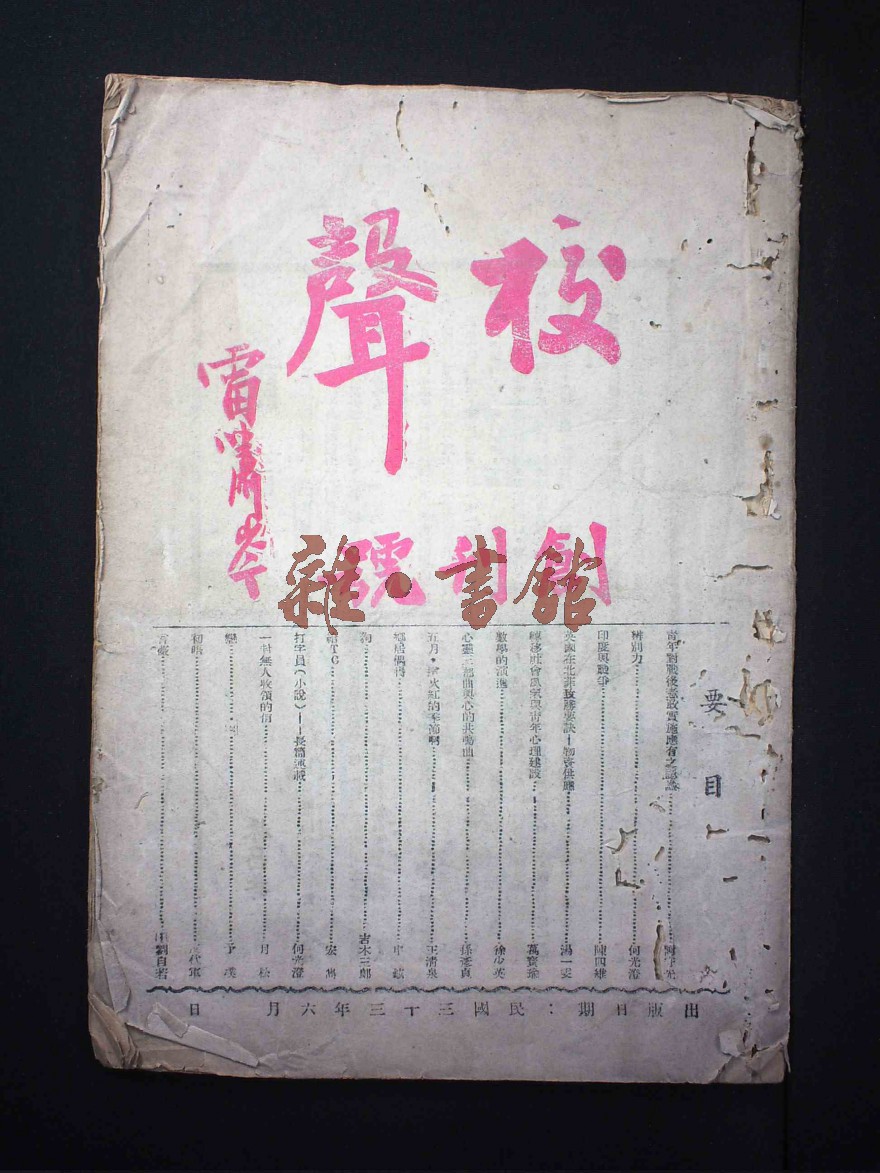 校聲
雷嘯岑
創刊號
雜·書館
要目
青年對戰後憲政實施應有之認識
辨別力 何光澄
印度與戰爭 陳四雄
英國在北非致勝要訣—物資供應 馮一雯
轉移社會風氣與青年心理建設 萬寶瑜
數學的演進 徐少英
心靈三部曲與心的共鳴曲 孫
五月·榴火紅的季節啊 王清泉
鄉居偶得 申
狗 吉木三郎
給TG 宏
打字員(小說)——長篇連載 何光澄
一封無人收領的信 月松
戀 予
初眼 代軍
劉自若
出版日期:民國三十三年六月 日